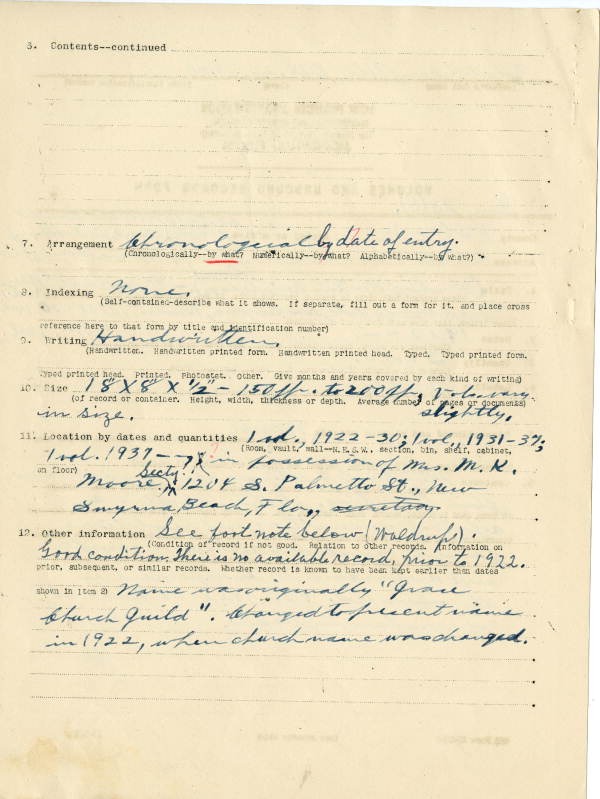 3. Contents--continued
7. Arrangement Chronological by date of entry.
(Chronologically--by what? Numerically--by what? Alphabetically--by what?)
8. Indexing None.
(Self-contained-describe what it shows. If separate, fill out a form for it, and place cross
reference here to that form by title and identification number)
9. Writing Handwritten.
(Handwritten. Handwritten printed form. Handwritten printed head. Typed. Typed printed form.
Typed printed head. Printed. Photostat. Other. Give months and years covered by each kind of writing)
10. Size 18 X 8 X 1/2" - 150 pp. to 200 pp, Vols. vary
(Size of record or container. Height, width, thickness or depth. Average number of pages or documents)
in size. slightly.
11. Location by dates and quantities 1 vol., 1922-30; 1 vol., 1931-37;
(Room, vault, wall--N.E.S.W., section, bin, shelf, cabinet,
1 vol. 1937-- in possession of Mrs. M. K.
on floor)
Moore, Secty., 1204 S. Palmetto St., New
Smyrna Beach, Fla., secretary
12. Other information See foot note below (Waldrup).
(Condition of record if not good. Relation to other records. Information on
Good condition. There is no available record, prior to 1922.
prior, subsequent, or similar records. Whether record is known to have been kept earlier than dates
shown in Item 2) Name was originally "Grace
Church Guild". Changed to present name
in 1922, when church name was changed.